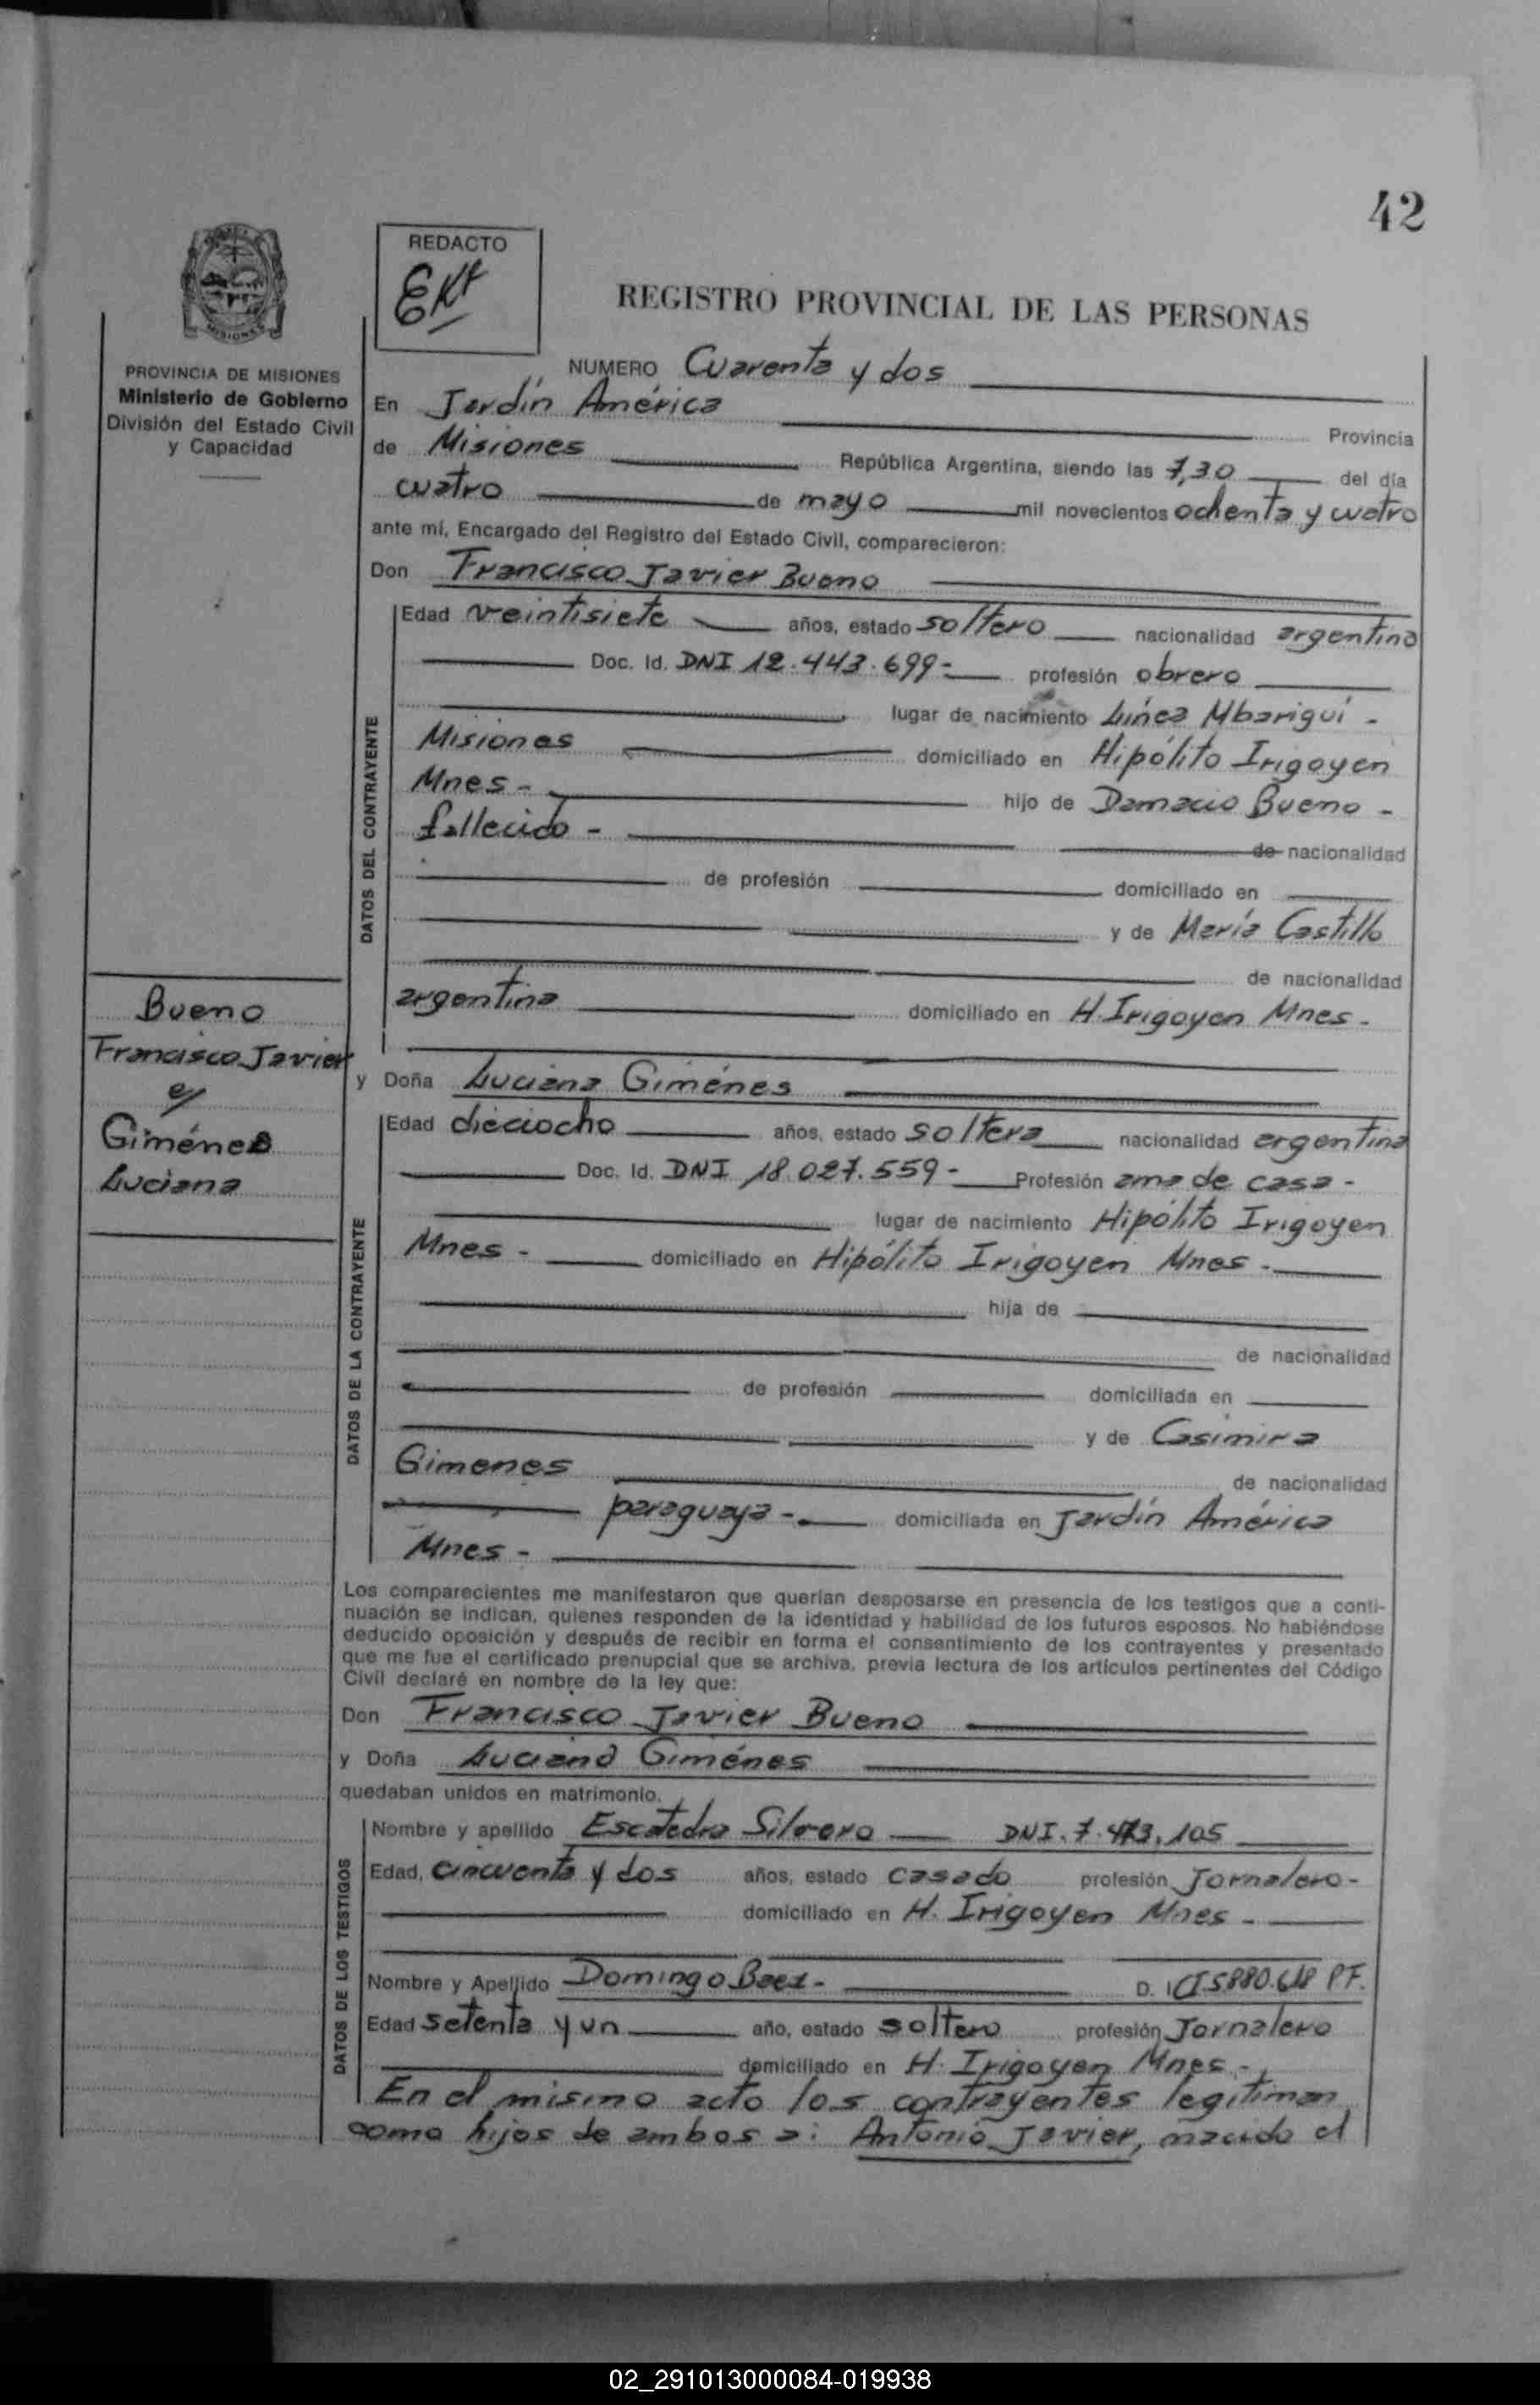 42
REDACTO
EKt
REGISTRO PROVINCIAL DE LAS PERSONAS
MISIONES
PROVINCIA DE MISIONES
Ministerio de Gobierno
División del Estado Civil
y Capacidad
NUMERO Cuarenta y dos
En Jardín América Provincia
de Misiones República Argentina, siendo las 7,30 del día
cuatro de mayo mil novecientos ochenta y cuatro
ante mí, Encargado del Registro del Estado Civil, comparecieron:
Don Francisco Javier Bueno
DATOS DEL CONTRAYENTE
Edad veintisiete años, estado soltero nacionalidad argentina
Doc. Id. DNI 12.443.699- profesión obrero
lugar de nacimiento Línea Mbariguí -
Misiones domiciliado en Hipólito Irigoyen
Mnes - hijo de Damacio Bueno -
fallecido - de nacionalidad
de profesión domiciliado en
y de María Castillo
de nacionalidad
argentina domiciliado en H. Irigoyen Mnes -
Bueno
Francisco Javier
y
Giménes
Luciana
y Doña Luciana Giménes
DATOS DE LA CONTRAYENTE
Edad dieciocho años, estado soltera nacionalidad argentina
Doc. Id. DNI 18.027.559- Profesión ama de casa -
lugar de nacimiento Hipólito Irigoyen
Mnes - domiciliado en Hipólito Irigoyen Mnes -
hija de
de nacionalidad
de profesión domiciliada en
y de Casimira
Gimenes de nacionalidad
paraguaya - domiciliada en Jardín América
Mnes -
Los comparecientes me manifestaron que querían desposarse en presencia de los testigos que a conti-
nuación se indican, quienes responden de la identidad y habilidad de los futuros esposos. No habiéndose
deducido oposición y después de recibir en forma el consentimiento de los contrayentes y presentado
que me fue el certificado prenupcial que se archiva, previa lectura de los artículos pertinentes del Código
Civil declaré en nombre de la ley que:
Don Francisco Javier Bueno
y Doña Luciana Giménes
quedaban unidos en matrimonio.
DATOS DE LOS TESTIGOS
Nombre y apellido Silvero DNI. 7.473.105
Edad, cincuenta y dos años, estado casado profesión Jornalero -
domiciliado en H. Irigoyen Mnes -
Nombre y Apellido Domingo Baez - D. I CI 5880.618 PF.
Edad setenta y un año, estado soltero profesión Jornalero
domiciliado en H. Irigoyen Mnes -
En el mismo acto los contrayentes legitiman
como hijos de ambos a: Antonio Javier, nacido el
02_291013000084-019938